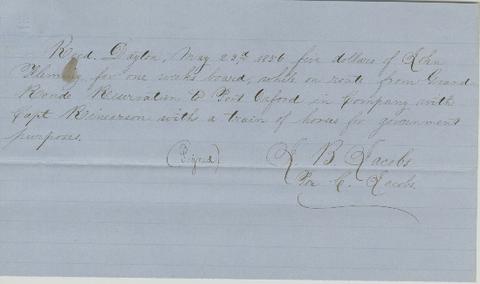 Recd. Dayton, May 23rd 1856 five dollars of John
Fleming for one weeks board, while on route from Grand
Rond Reservation to Port Orford in Company with
Capt Rinearson with a train of horses for government
purposes.
(Signed) L. B. Jacobs
Per C. Jacobs.